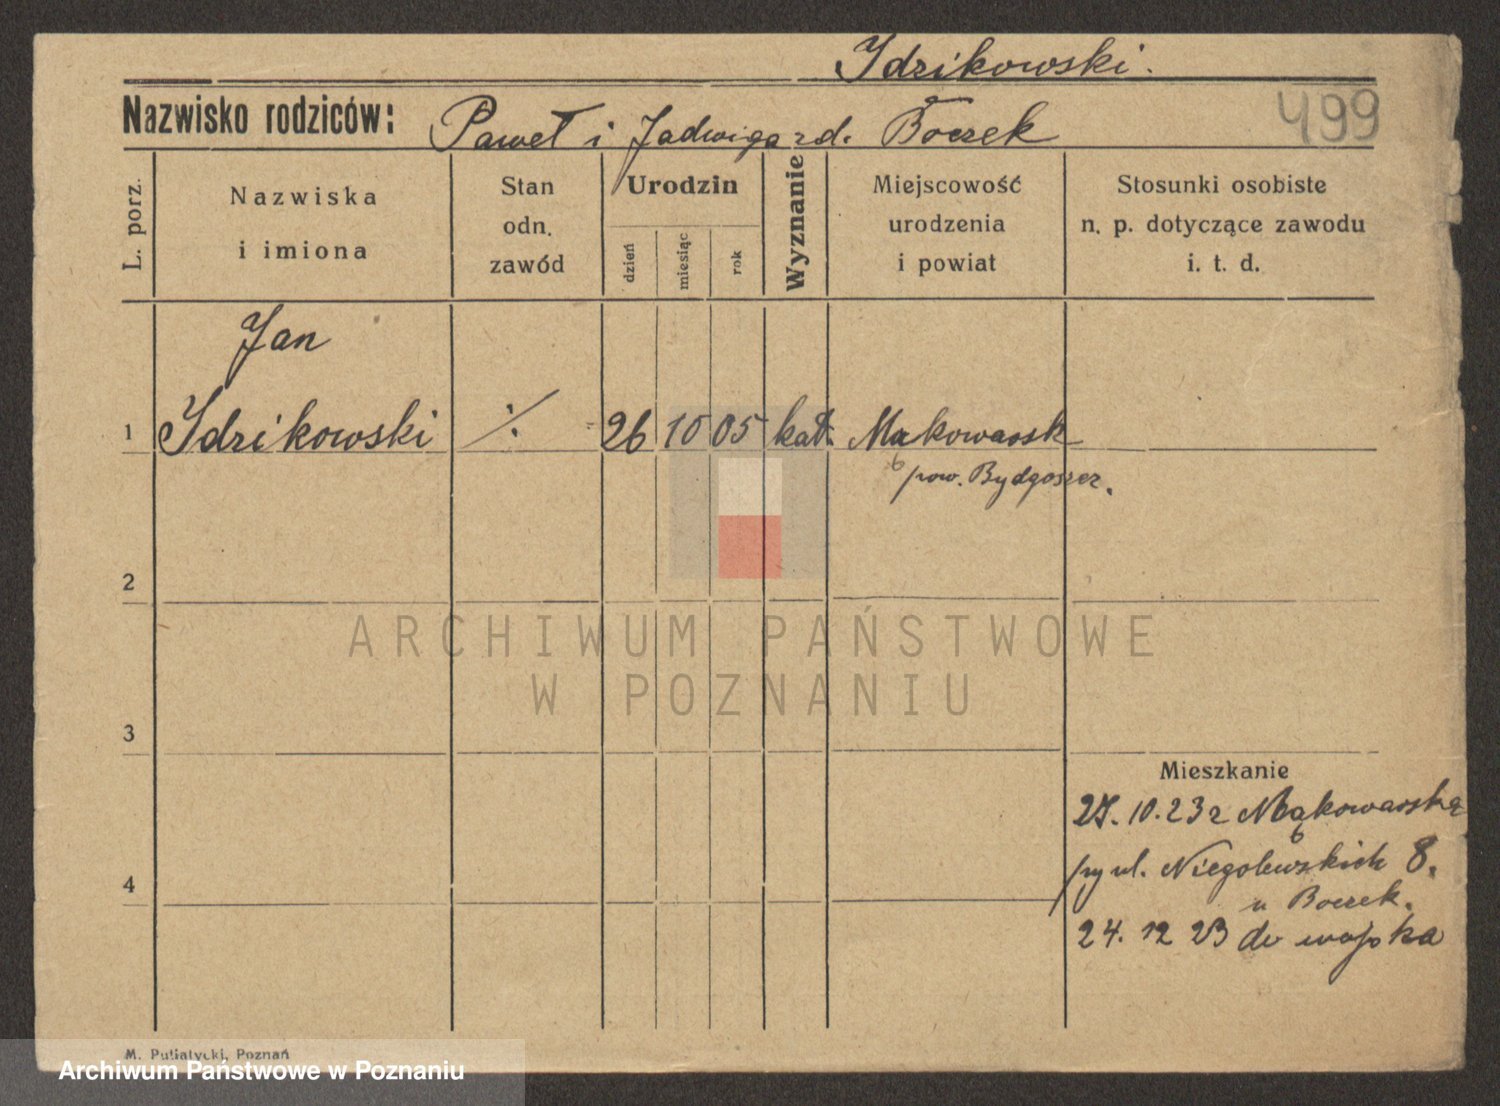 Idzikowski.
Nazwisko rodziców: Paweł i Jadwiga zd. Boczek
499
L. porz.
Nazwiska
i imiona
Stan
odn.
zawód
Urodzin
dzień
miesiąc
rok
Wyznanie
Miejscowość
urodzenia
i powiat
Stosunki osobiste
n. p. dotyczące zawodu
i. t. d.
Jan
1 Idzikowski ·/. 26 10 05 kat. Mąkowarsk
pow. Bydgoszcz.
2
ARCHIWUM PAŃSTWOWE
W POZNANIU
3
Mieszkanie
27. 10. 23 z Mąkowarska
przy ul. Niegolewskich 8.
4
u Boczek.
24. 12 23 do wojska
M. Putiatycki, Poznań
Archiwum Państwowe w Poznaniu